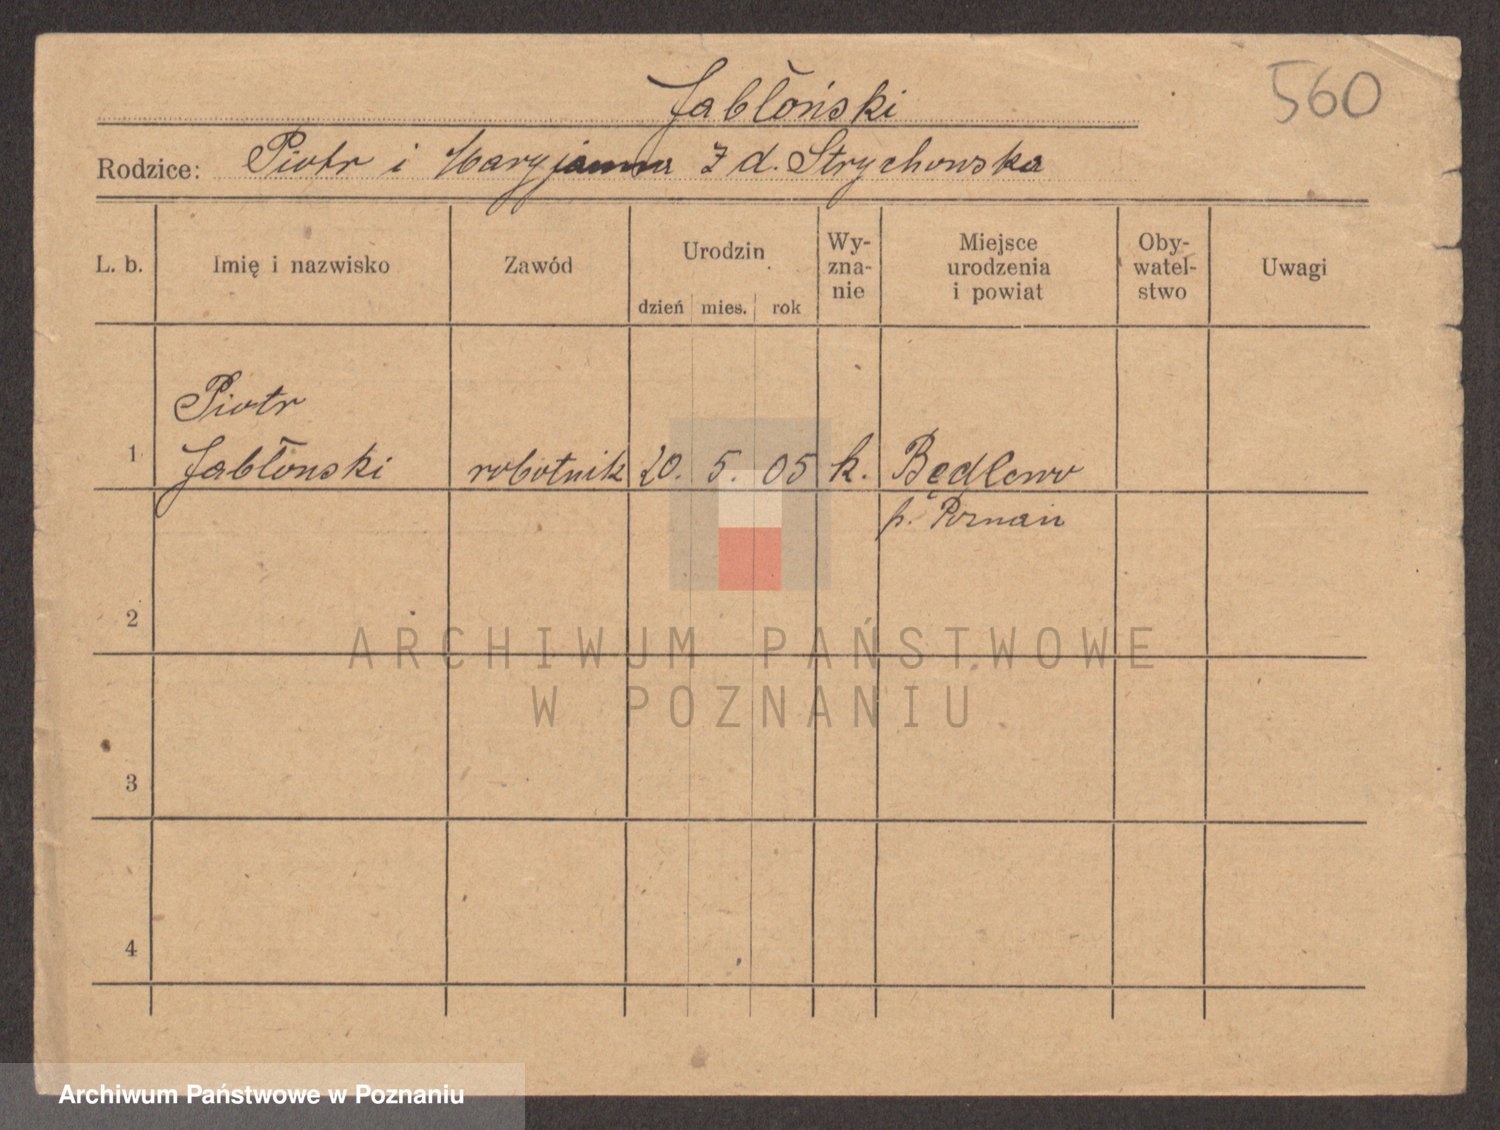 560
Jabłoński
Rodzice: Piotr i Maryjanna z d. Strychowska
L. b. Imię i nazwisko Zawód Urodzin dzień mies. rok Wy-zna-nie Miejsce urodzenia i powiat Oby-watel-stwo Uwagi
Piotr
1 Jabłonski robotnik 20. 5. 05 k. Będlewo
p. Poznań
2
ARCHIWUM PAŃSTWOWE
W POZNANIU
3
4
Archiwum Państwowe w Poznaniu